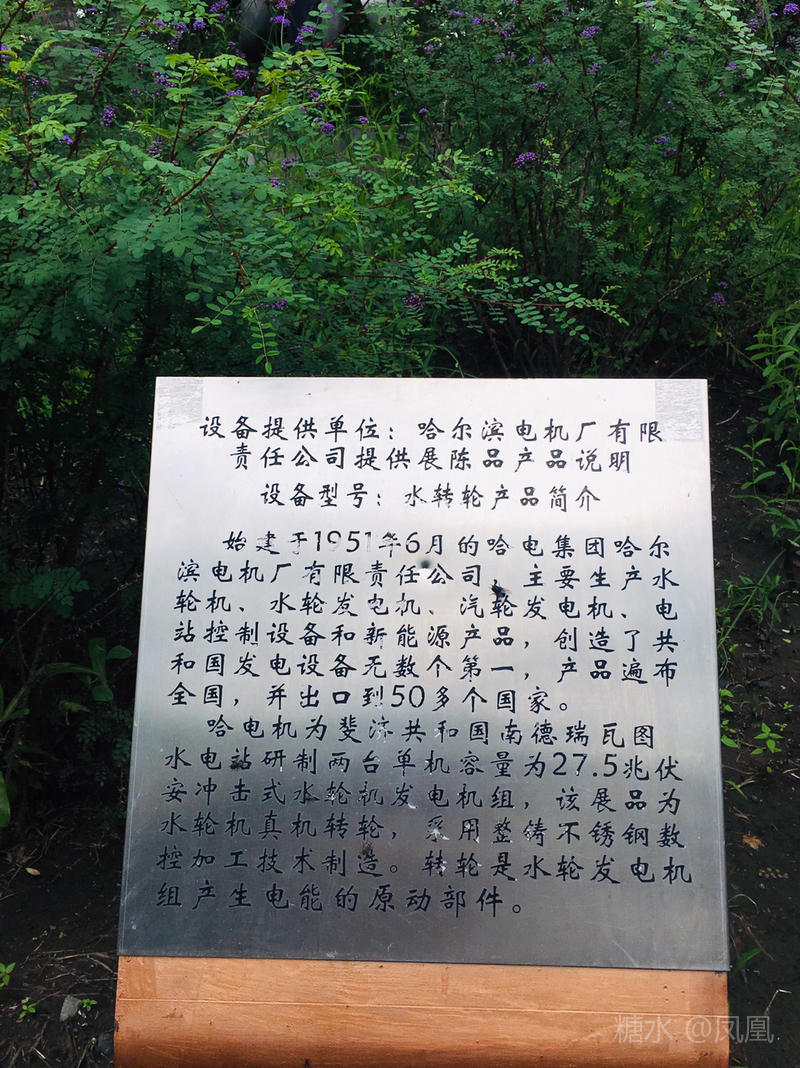 设备提供单位：哈尔滨电机厂有限
责任公司提供展陈品产品说明
设备型号：水转轮产品简介
始建于1951年6月的哈电集团哈尔
滨电机厂有限责任公司，主要生产水
轮机、水轮发电机、汽轮发电机、电
站控制设备和新能源产品，创造了共
和国发电设备无数个第一，产品遍布
全国，并出口到50多个国家。
哈电机为斐济共和国南德瑞瓦图
水电站研制两台单机容量为27.5兆伏
安冲击式水轮机发电机组，该展品为
水轮机真机转轮，采用整铸不锈钢数
控加工技术制造。转轮是水轮发电机
组产生电能的原动部件。
糖水 @凤凰